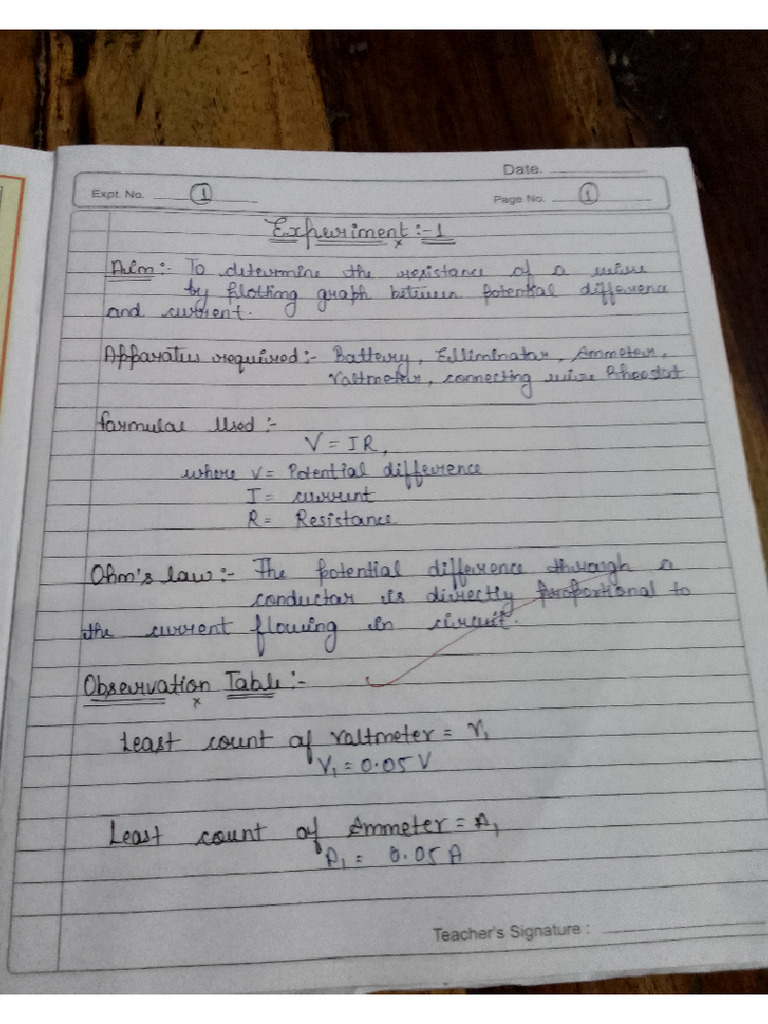 Date.
Expt. No. 1
Page No. 1
Experiment :- 1
Aim :- To determine the resistance of a wire
by plotting graph between potential difference
and current.
Apparatus required :- Battery, Elliminator, Ammeter,
Valtmeter, connecting wire Rheostat
formulae Used :-
V = IR,
where V = Potential difference
I = current
R = Resistance
Ohm's law :- The potential difference through a
conductor is directly proportional to
the current flowing in circuit.
Observation Table :-
Least count of Valtmeter = V₁
V₁ = 0.05 V
Least count of Ammeter = A₁
A₁ = 0.05 A
Teacher's Signature :